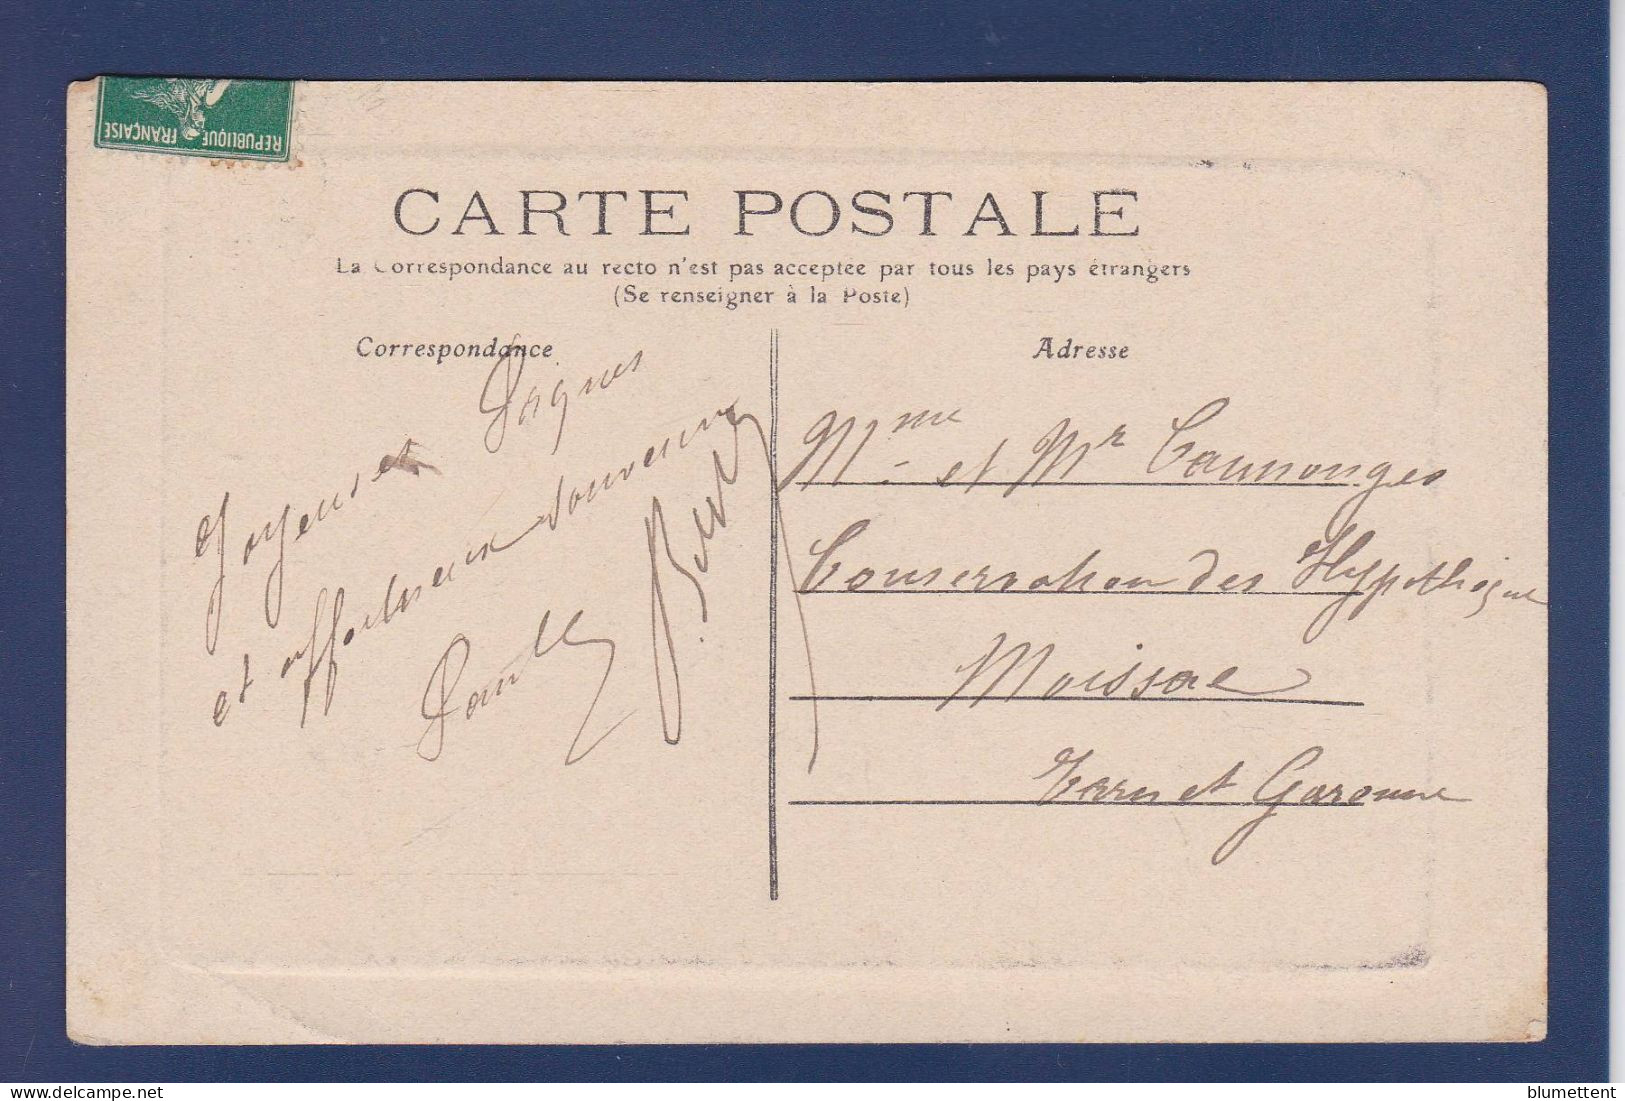 REPUBLIQUE FRANÇAISE
CARTE POSTALE
La Correspondance au recto n'est pas acceptée par tous les pays étrangers
(Se renseigner à la Poste)
Correspondance
Joyeuses Pâques
et affectueux souvenirs
Adresse
Mme et Mr
Conservation des Hypothèques
Moissac
Tarn et Garonne
blumettent